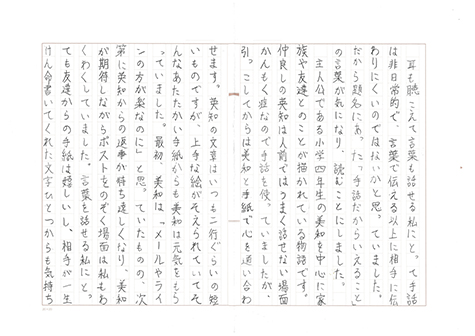 耳も聴こえて言葉も話せる私にとって手話
は非日常的で、言葉で伝える以上に相手に伝
わりにくいのではないかと思っていました。
だから題名にあった「手話だからいえること」
の言葉が気になり、読むことにしました。
主人公である小学四年生の美知を中心に家
族や友達とのことが描かれている物語です。
仲良しの英知は人前ではうまく話せない場面
かんもく症なので手話を使っていましたが、
引っこしてからは美知と手紙で心を通い合わ
せます。英知の文章はいつも二行ぐらいの短
いものですが、上手な絵がそえられていてそ
んなあたたかい手紙からも美知は元気をもら
っていました。最初、美知は「メールやライ
ンの方が楽なのに」と思っていたものの、次
第に英知からの返事が待ち遠しくなり、美知
が期待しながらポストをのぞく場面は私もわ
くわくしていました。言葉を話せる私にとっ
ても友達からの手紙は嬉しいし、相手が一生
けん命書いてくれた文字ひとつからも気持ち